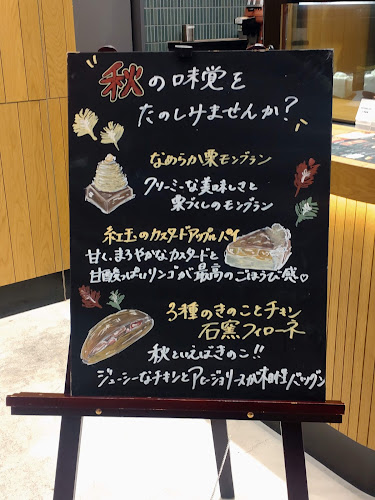 秋の味覚を
たのしみませんか?
なめらか栗モンブラン
クリーミーな美味しさと
栗づくしのモンブラン
紅玉のカスタードアップルパイ
甘く、まろやかなカスタードと
甘酸っぱいリンゴが最高のごほうび感♡
3種のきのことチキン
石窯フィローネ
秋といえばきのこ!!
ジューシーなチキンとアヒージョソースが相性バツグン